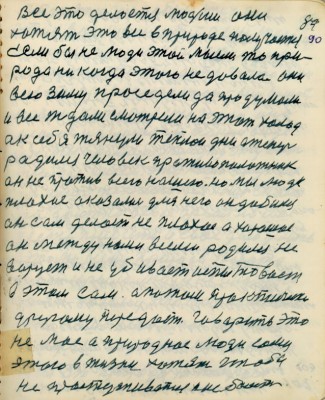 89
все это делостя людми они
90
хотят это все в природе получается
если бы не люди этой мысли то при-
рода никогда этого недовала они
всю зиму проседели да продумали
и все ждали смотрели на этот холод
ак себя тянули теплои дни атепер
радился человек противоположник
он не против всего нашего. но мы люде
плохие аказали для него он добился
он сам делоет не плохое а хорошое
он между нами всеми родился не
варует и не убивает
в этом сам. апотом практически
другому передает. Гаварить это
не мое а природное люди сами
этого в жизни хотят чтобы
не простуживатся и не болеть.